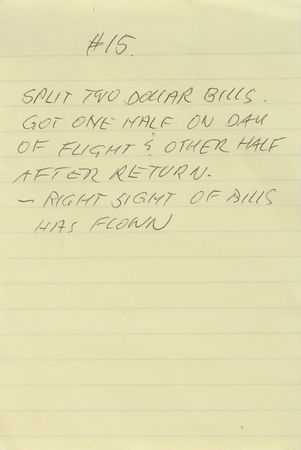 #15.
SPLIT TWO DOLLAR BILLS.
GOT ONE HALF ON DAY
OF FLIGHT & OTHER HALF
AFTER RETURN.
- RIGHT SIGHT OF BILLS
HAS FLOWN